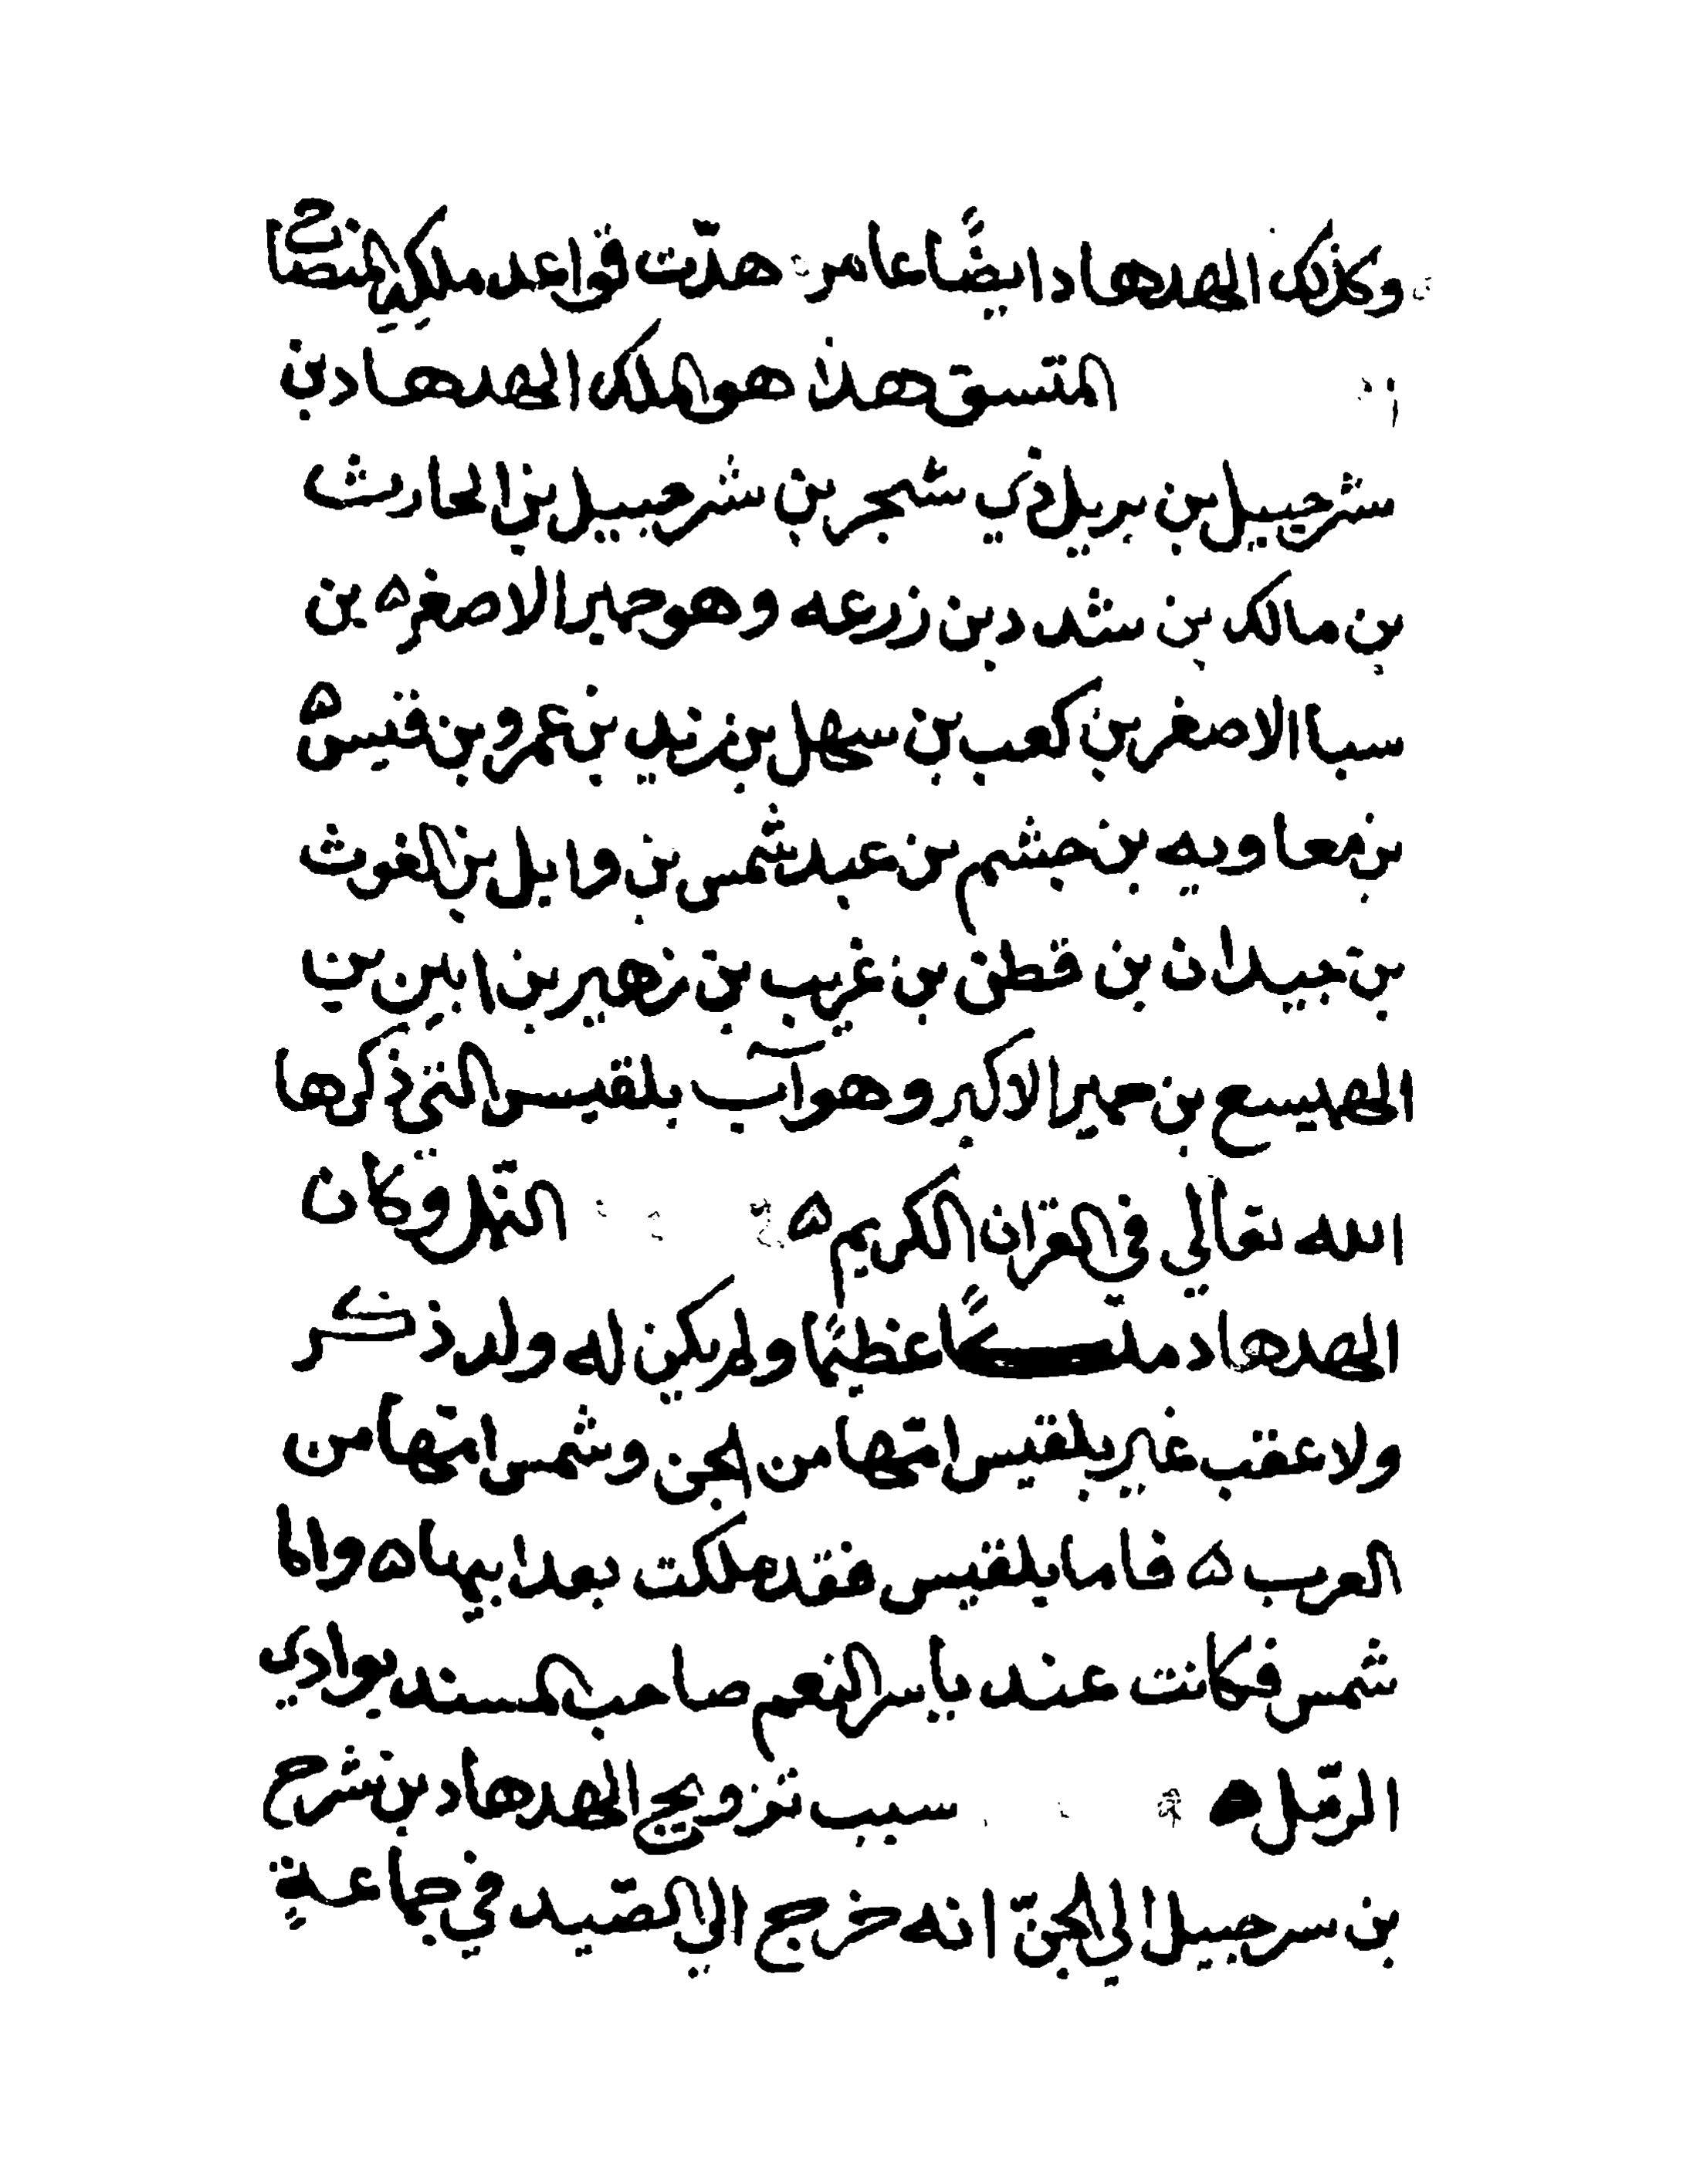 وكذلك الهدهاد ايضًا عامر هدّت قواعد ملكه المنضا حي
المتسق هذا هو الملك الهدهاد بن
شرحبيل بن بريل ذي شجر بن شرحبيل بن الحارث
بن مالك بن شدد بن زرعه وهو حمير الاصغر ه بن
سبا الاصغر بن كعب بن سهل بن زيد بن عمرو بن قيس ه
بن معاويه بن جشم بن عبد شمس بن وايل بن الغوث
بن جيدان بن قطن بن غريب بن زهير بن ابين بن
الهميسع بن حمير الاكبر وهو آب بلقيس التي ذكرها
الله تعالي في القرآن الكريم ه وكان
الهدهاد ملكًا عظيمًا ولم يكن له ولد ذكر
ولا عقب غير بلقيس امّها من الجن وشمس امّها من
العرب ه فاما بلقيس فقد ملكت بعد ابيها ه واما
شمس فكانت عند ياسر النعم صاحب المسند بوادي
الرّمل ه سبب تزويج الهدهاد بن شرح
بن سرحبيل الي الجنّ انه خرج الي الصّيد في جماعةٍ